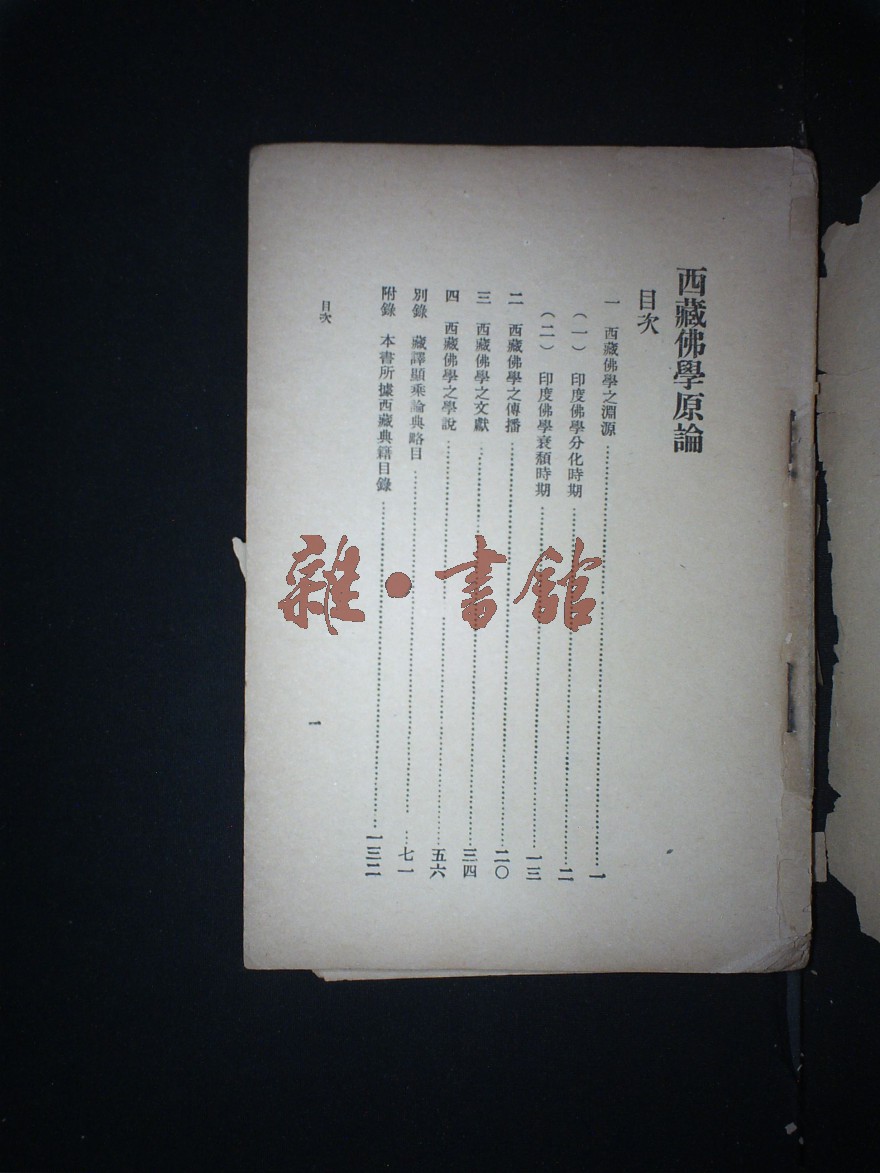 西藏佛學原論
目次
一 西藏佛學之淵源……一
（一） 印度佛學分化時期……二
（二） 印度佛學衰頹時期……一三
二 西藏佛學之傳播……二〇
三 西藏佛學之文獻……三四
四 西藏佛學之學說……五六
別錄 藏譯顯乘論典略目……七一
附錄 本書所據西藏典籍目錄……一三二
目次
一
雜·書館